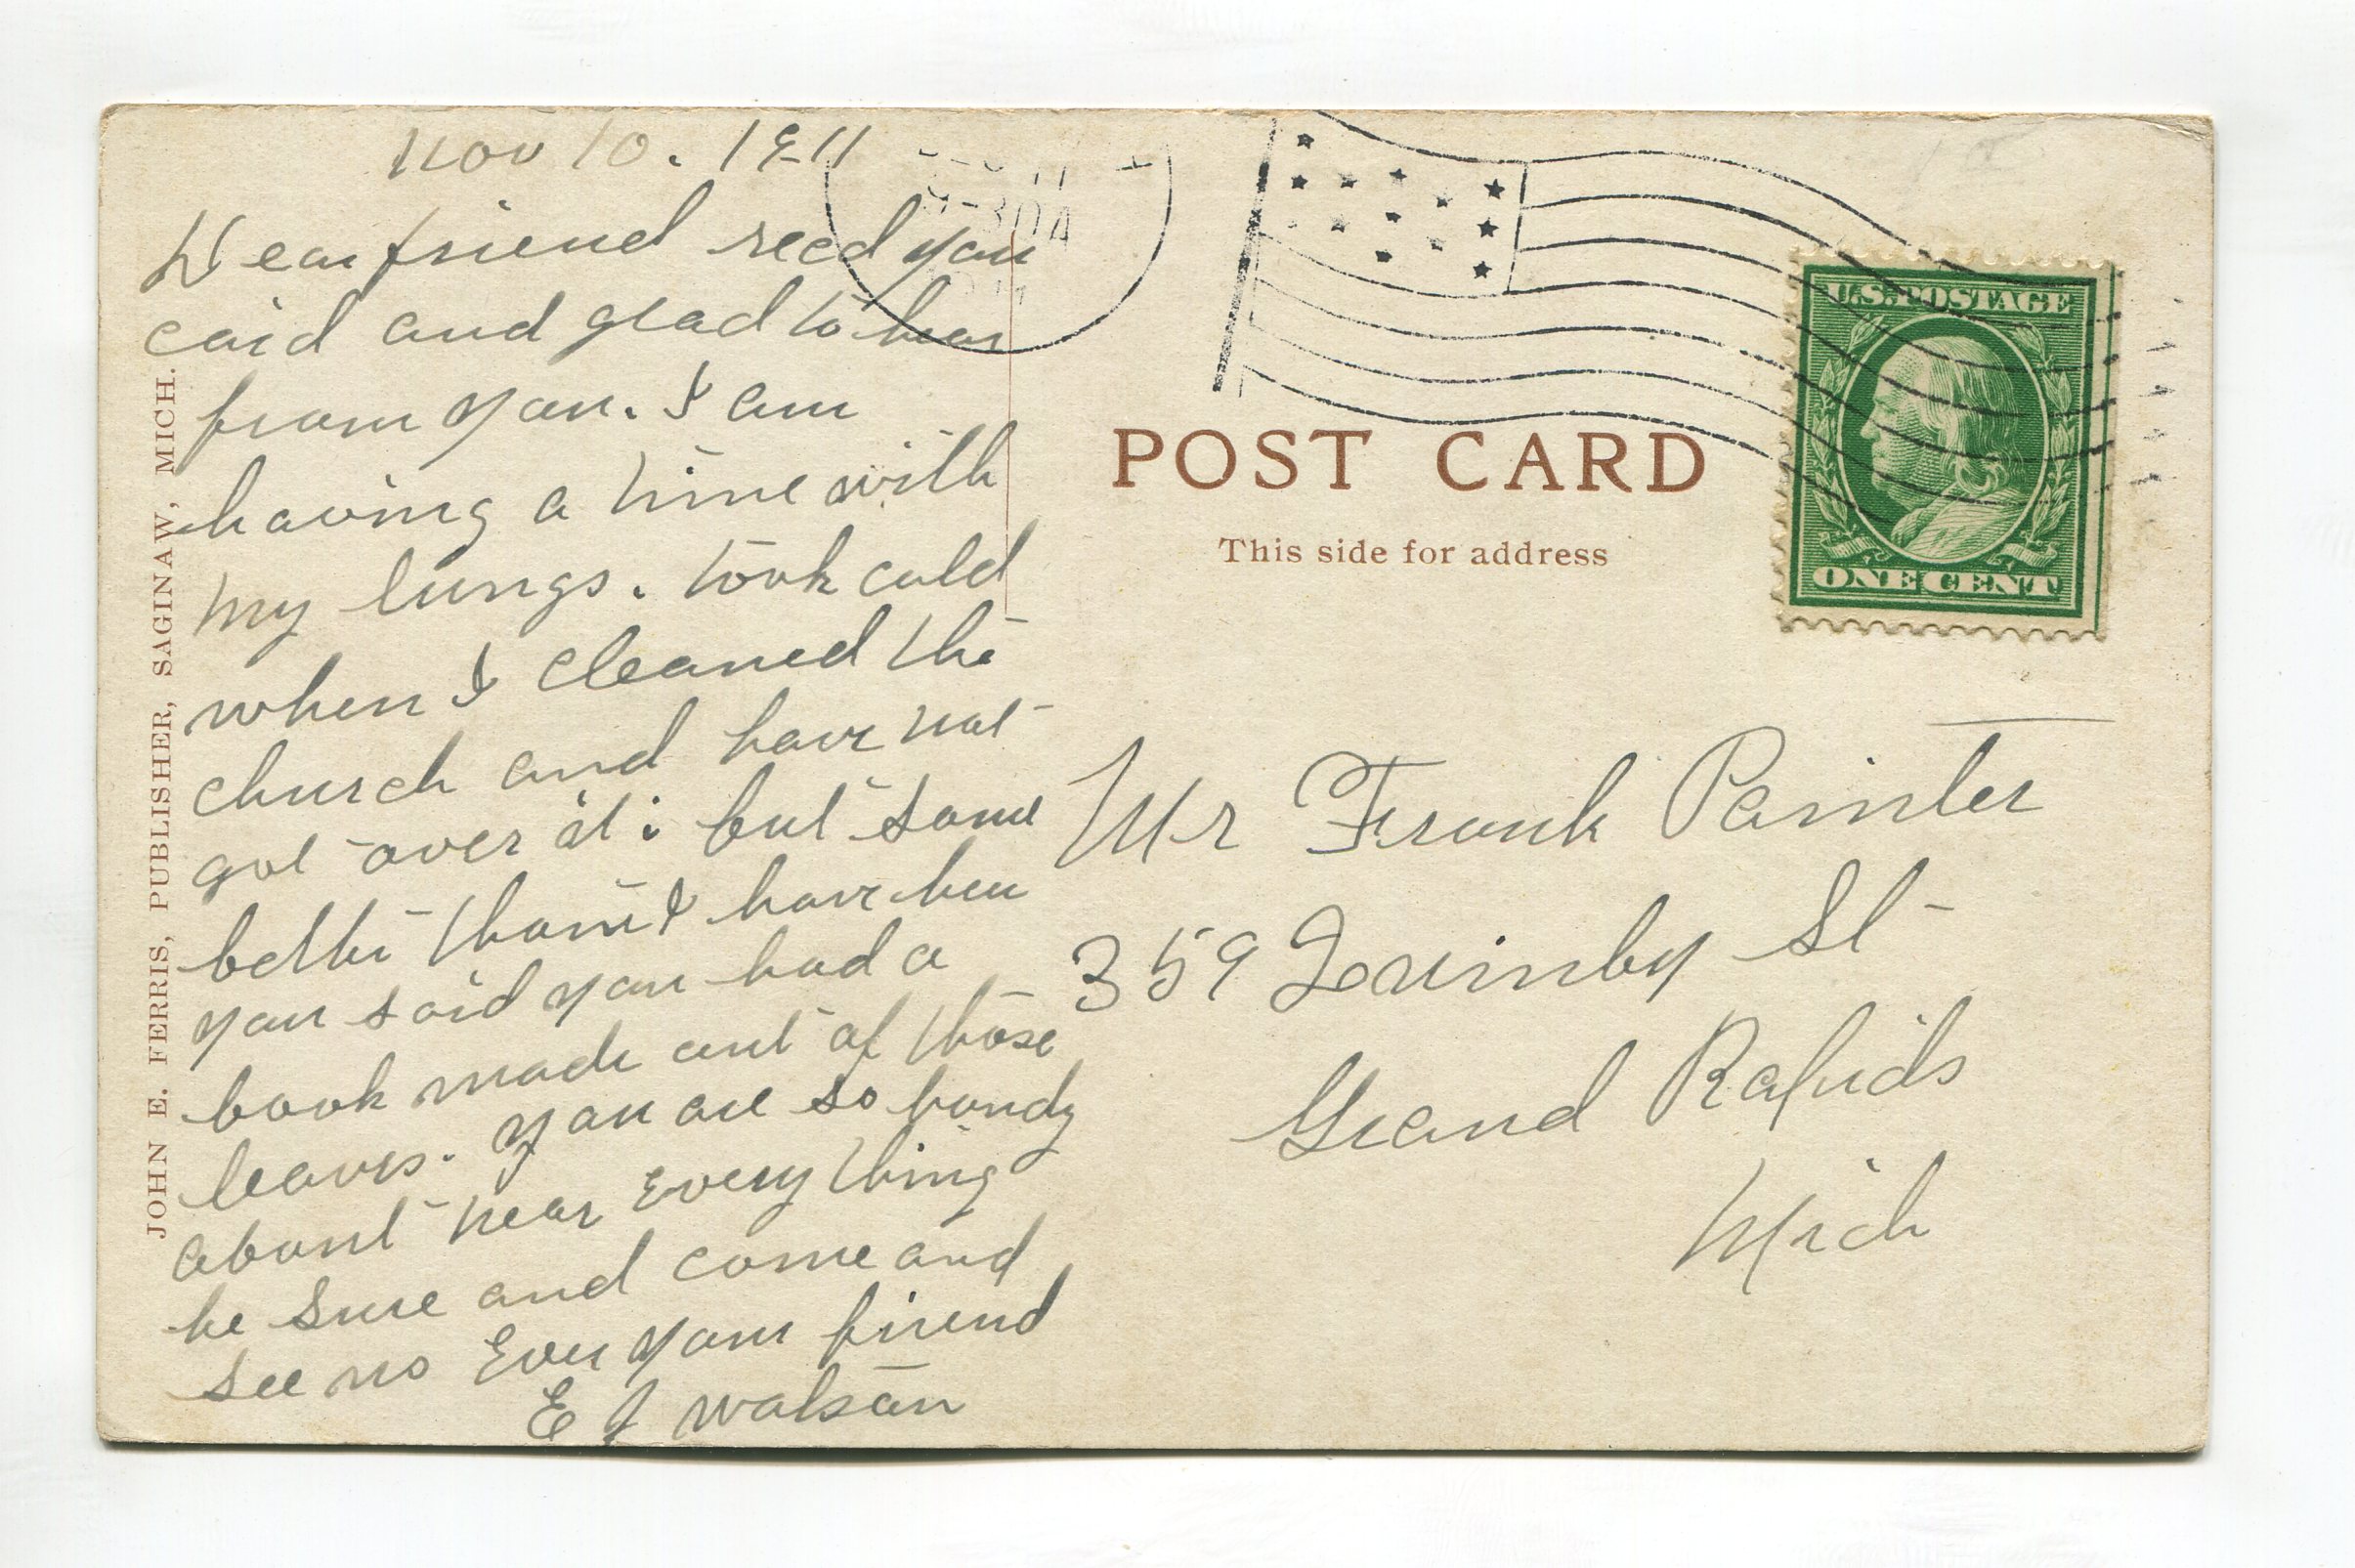 Nov 10. 1911
Dear friend recd you
card and glad to hear
from you. I am
having a time with
my lungs. took cold
when I cleaned the
church and have not
got over it. but some
better than I have ben
you said you had a
book made out of those
leaves. you are so handy
about near every thing
be sure and come and
see us Ever your friend
E J Watson
JOHN E. FERRIS, PUBLISHER, SAGINAW, MICH.
11
9-30A
U.S. POSTAGE
ONE CENT
POST CARD
This side for address
Mr Frank Painter
359 Quimby St
Grand Rapids
Mich